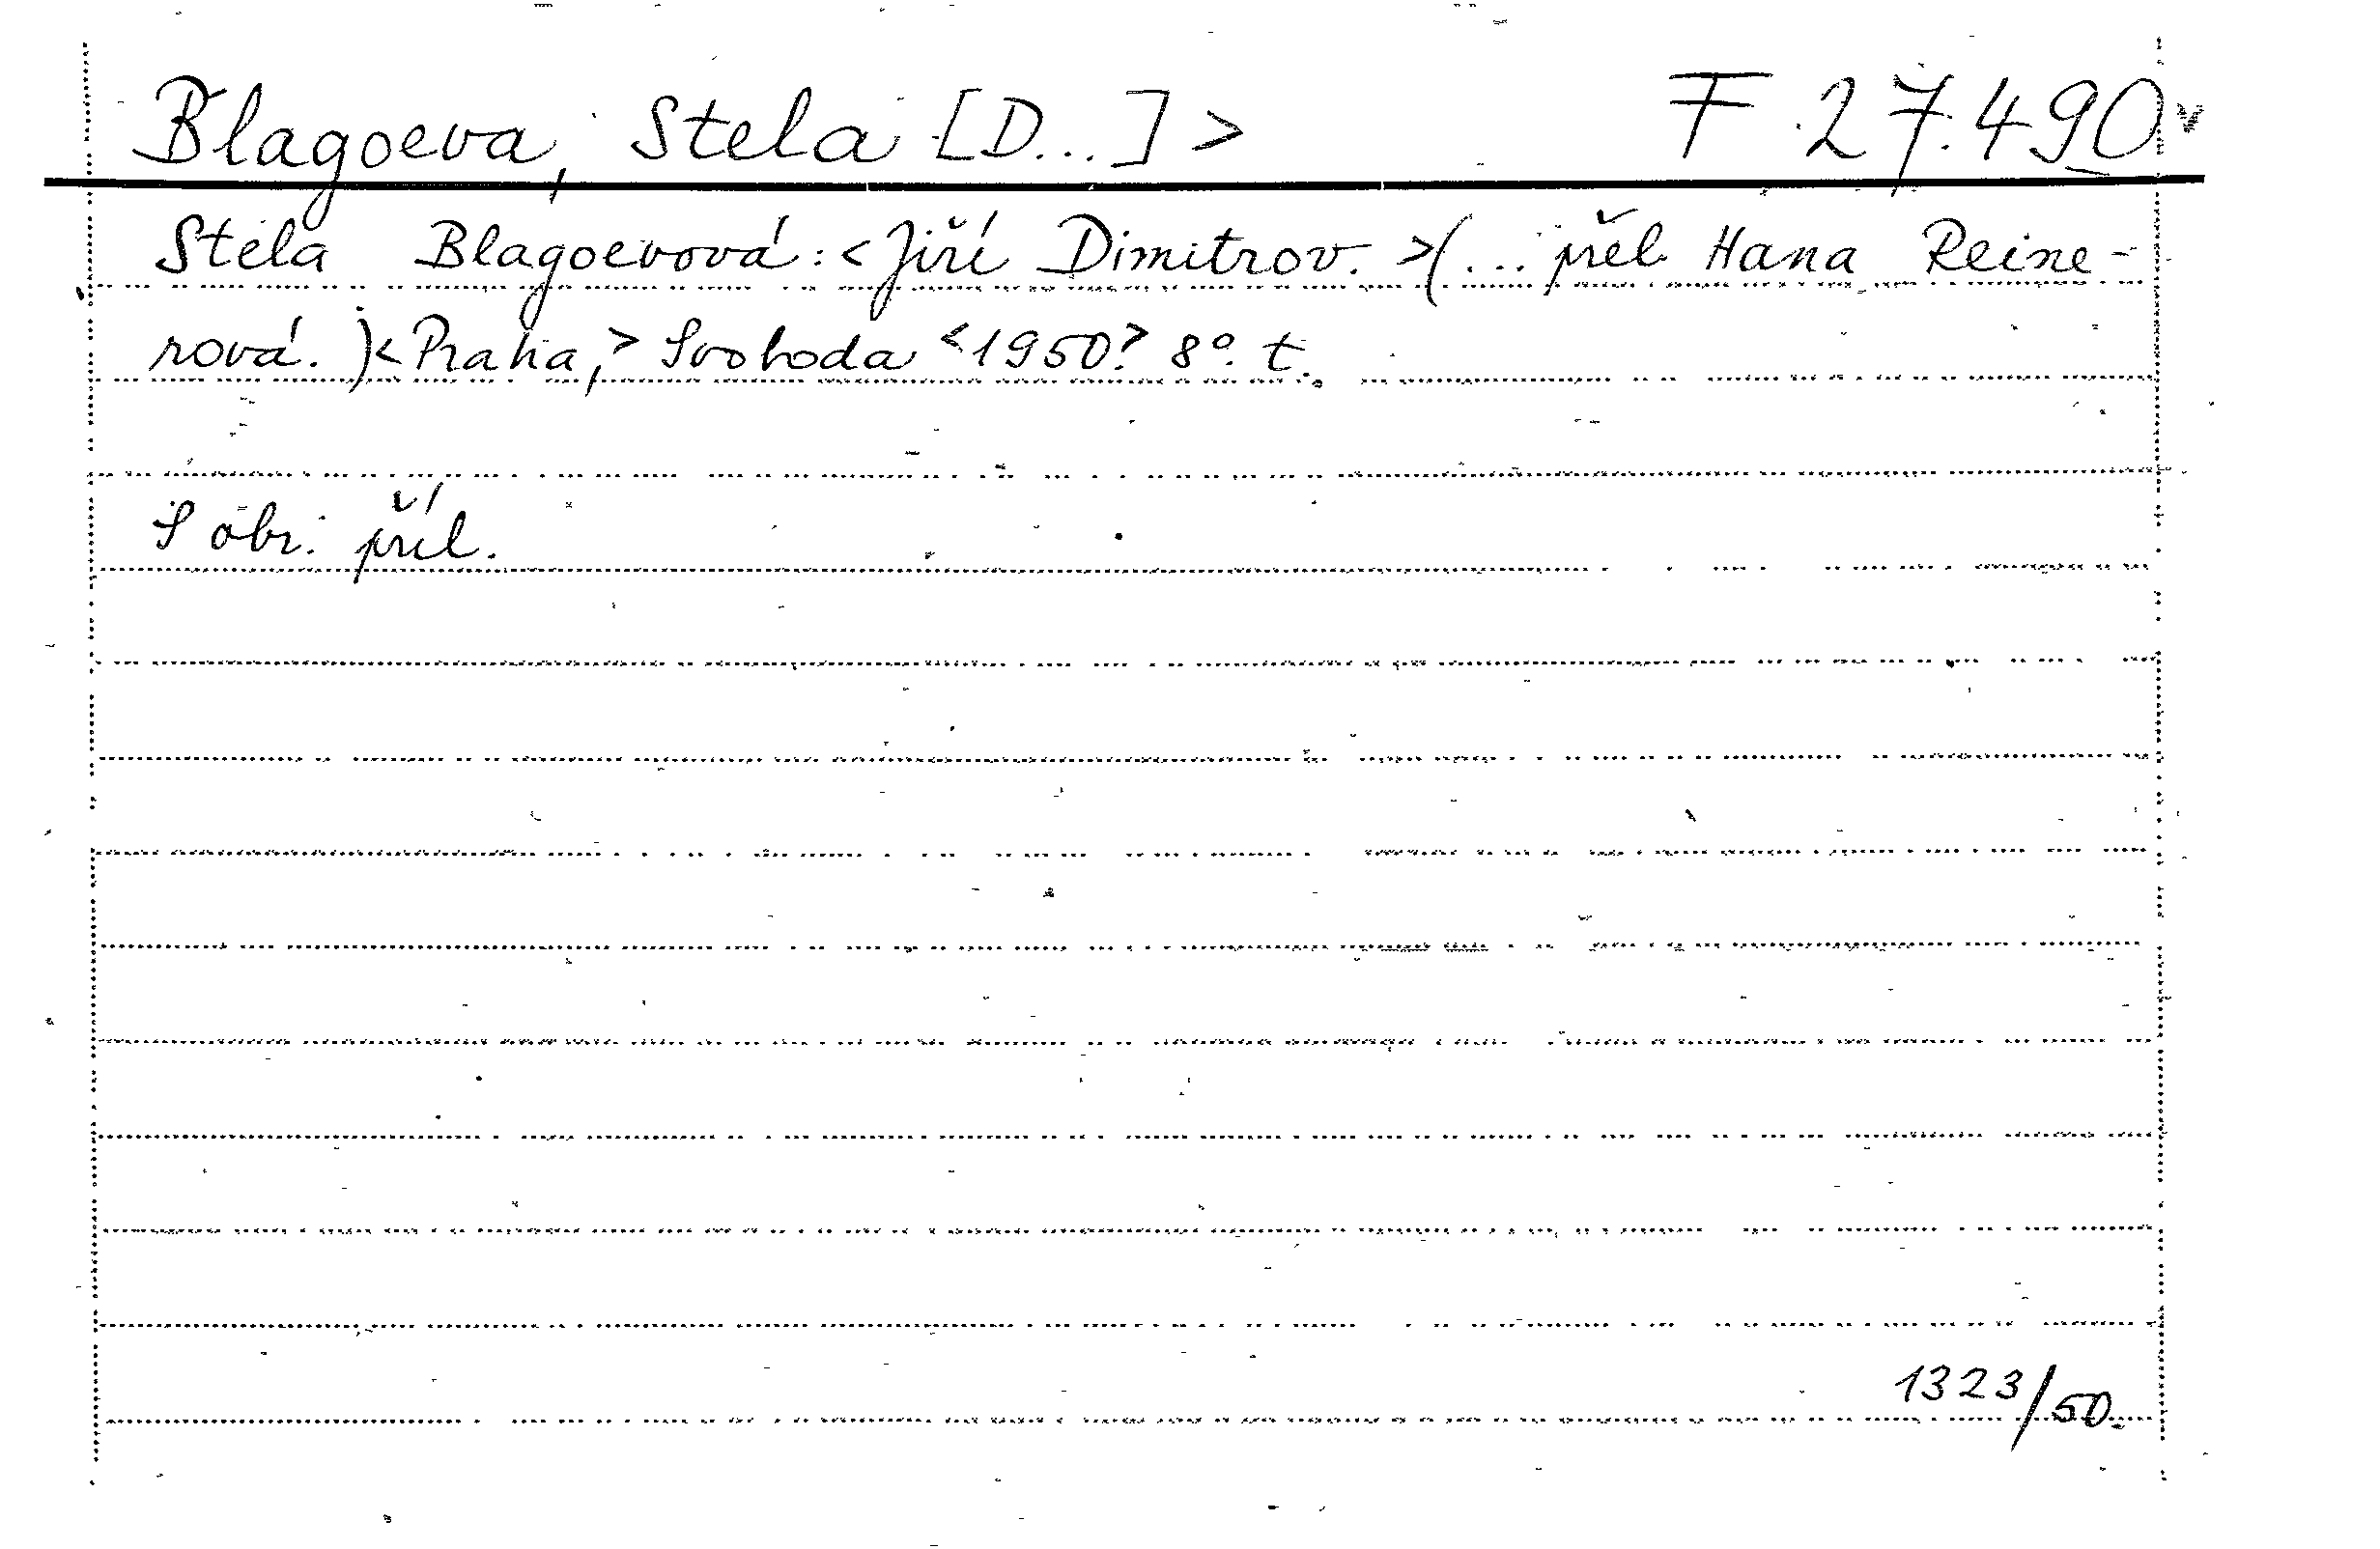 Blagoeva, Stela [D...] > F 27.490
Stela Blagoevová: <Jiří Dimitrov. >(... přel. Hana Reine-
rová. )<Praha,> Svoboda <1950> 8°. t.
S obr. příl.
1323/50.